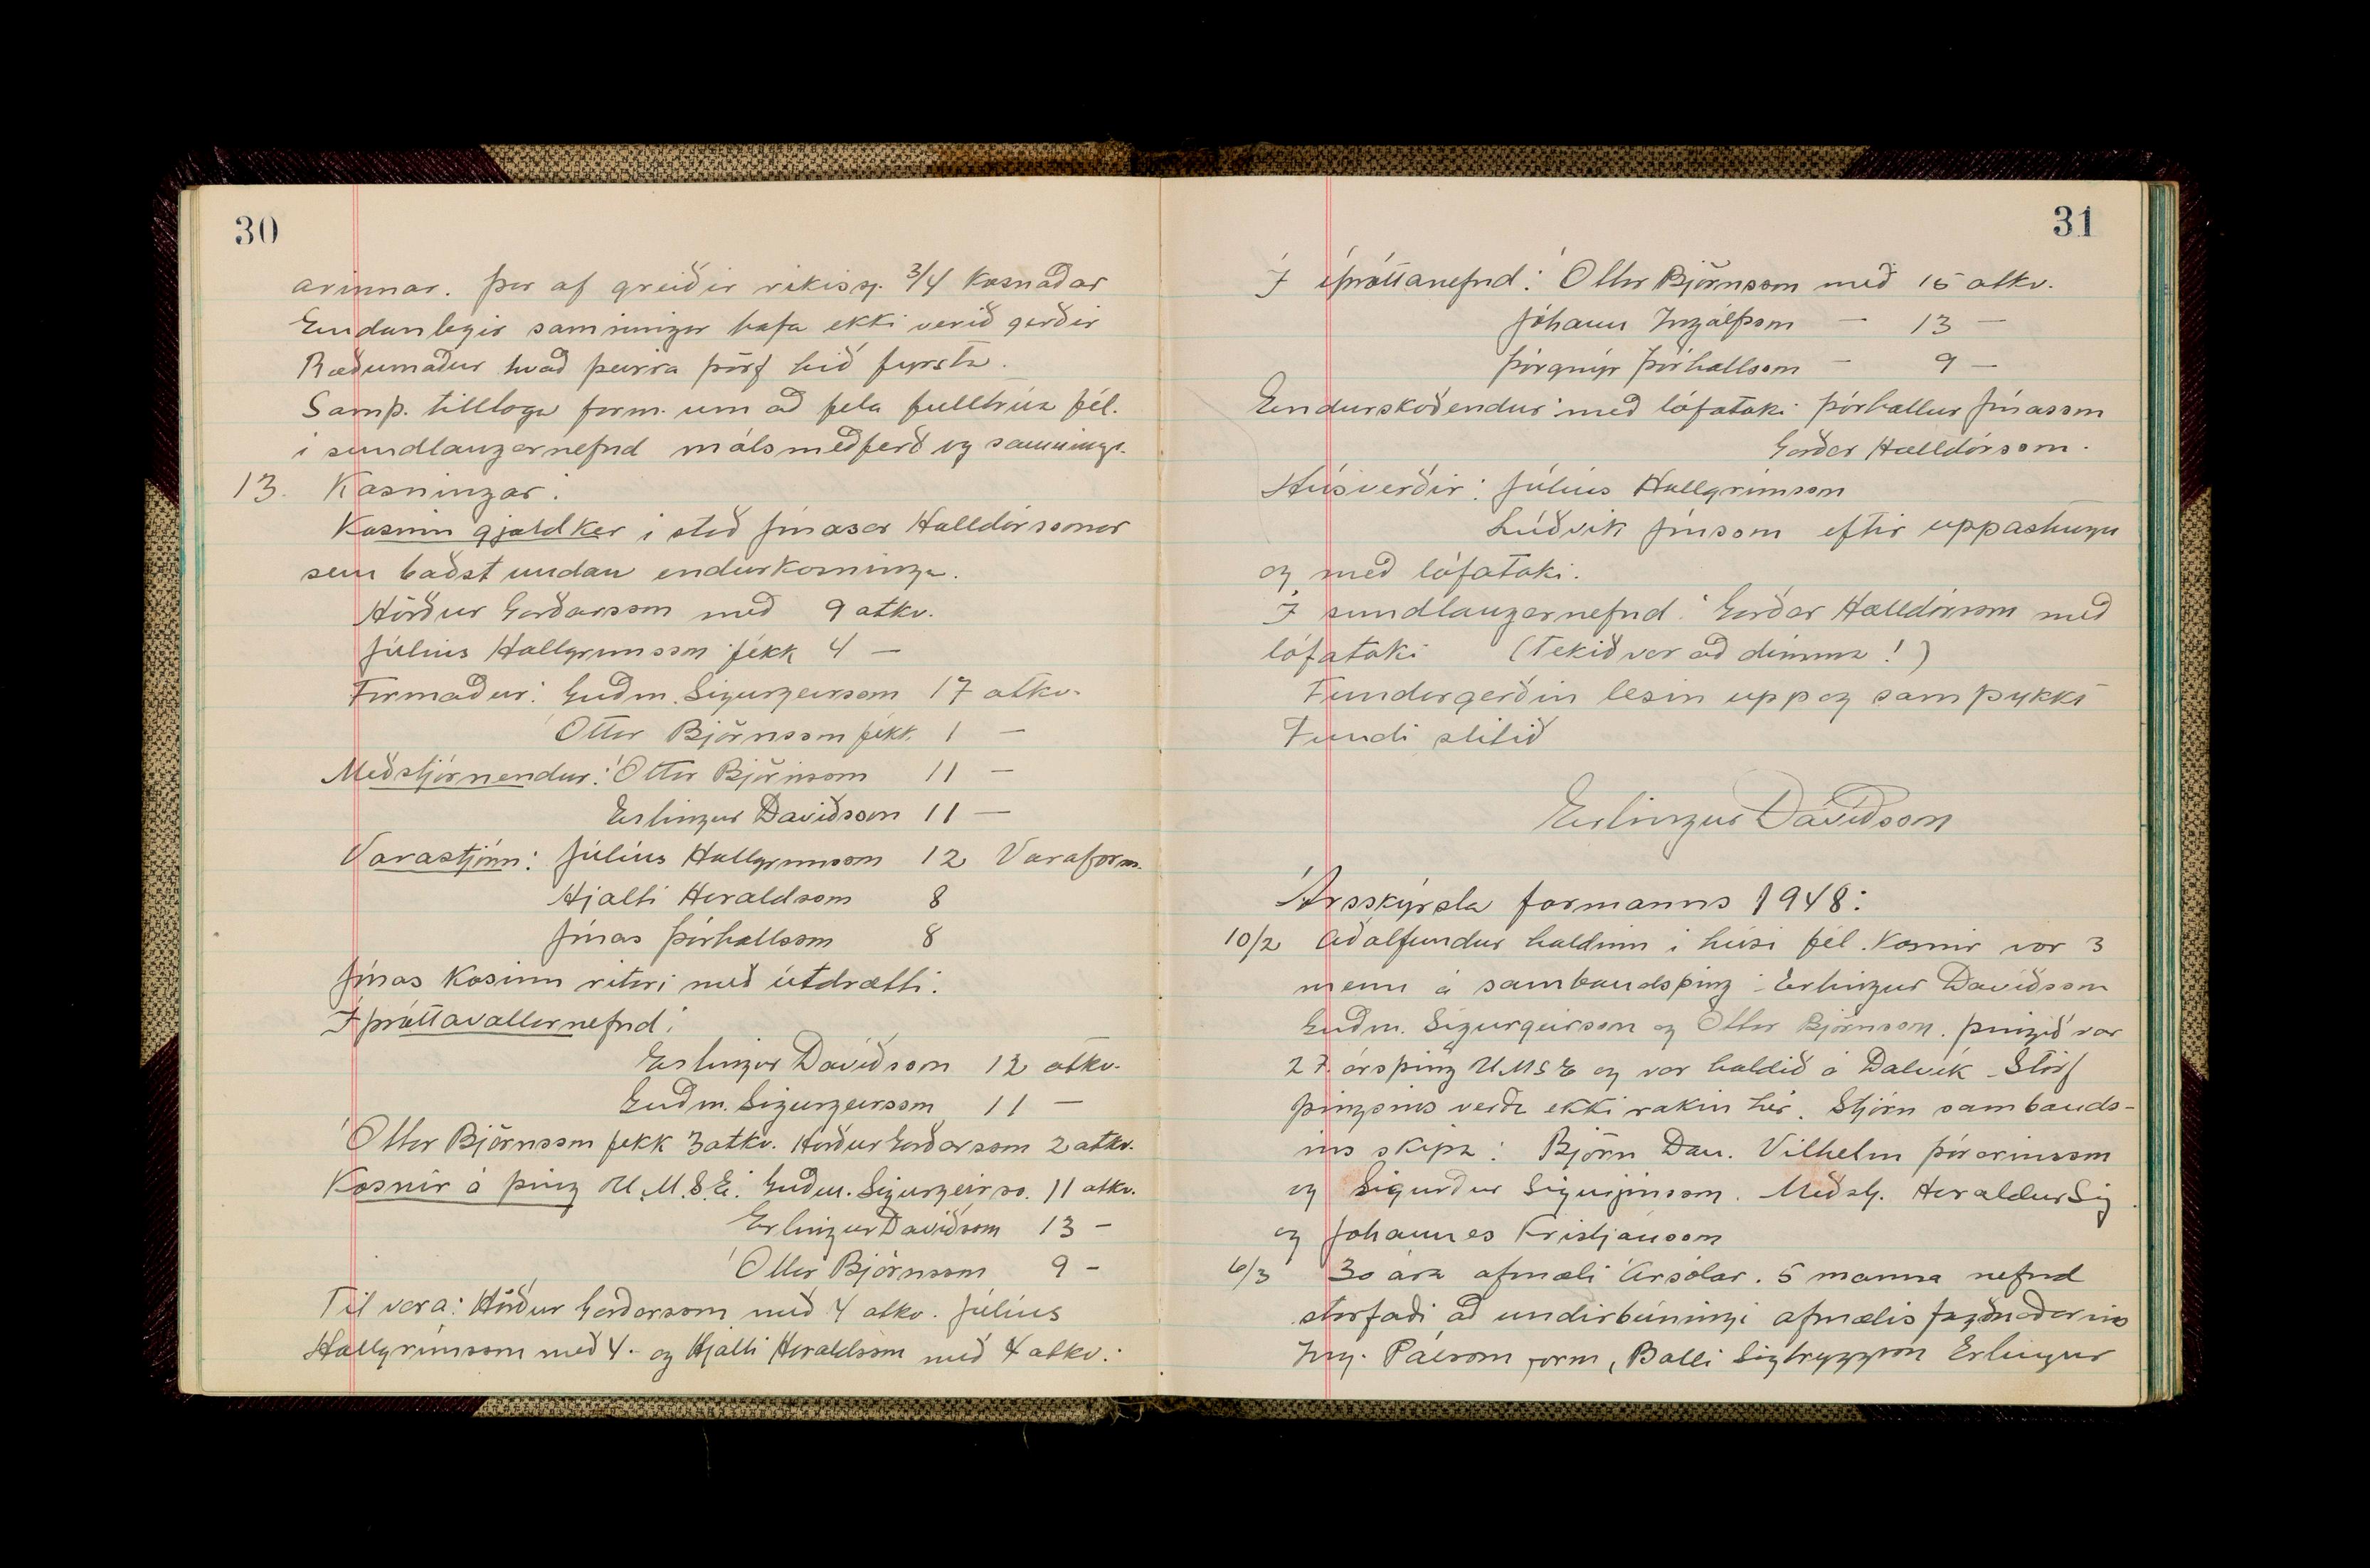 30
arinnar. Þar af greiðir rikissj. 3/4 Kosnaðar
Endanlegir samningar hafa ekki verið gerðir
Ræðumaður kvað þeirra þörf hið fyrsta.
Samþ. tillaga form. um að fela fulltrúa fél.
i sundlaugarnefnd málsmeðferð og samninga.
13. Kosningar:
Kosinn gjaldker i stað Jónasar Halldórssonar
sem baðst undan endurkosningu.
Hörður Garðarsson með 9 atkv.
Júlíus Hallgrimsson fékk 4 —
Formaður: Guðm. Sigurgeirsson 17 atkv.
Óttar Björnsson fékk 1 —
Meðstjórnendur: Óttar Björnsson 11 —
Erlingur Davíðsson 11 —
Varastjórn: Júlíus Hallgrimsson 12 Varaform.
Hjalti Haraldsson 8
Jónas Þórhallsson 8
Jónas Kosinn ritari með útdrætti.
Íþróttavallarnefnd:
Erlingur Davíðsson 12 atkv.
Guðm. Sigurgeirsson 11 —
Óttar Björnsson fekk 3 atkv. Hörður Garðarsson 2 atkv.
Kosnir á þing U.M.S.E: Guðm. Sigurgeirss. 11 atkv.
Erlingur Davíðsson 13 -
Óttar Björnsson 9 -
Til vara: Hörður Garðarsson með 4 atkv. Júlíus
Hallgrímsson með 4. og Hjalti Haraldsson með 4 atkv.
31
Í íþróttanefnd: Óttar Björnsson með 15 atkv.
Jóhann Ingólfsson — 13 —
Þórgnýr Þórhallsson — 9 —
Endurskoðendur með lófataki Þórhallur Jónasson
Garðar Halldórsson.
Húsverðir: Júlíus Hallgrímsson
Lúðvik Jónsson eftir uppástungu
og með lófataki.
Í sundlaugarnefnd: Garðar Halldórsson með
lófataki (Tekið var að dimma!)
Fundargerðin lesin upp og samþykkt
Fundi slitið
Erlingur Davíðsson
Ársskýrsla formanns 1948:
10/2 Aðalfundur haldinn i húsi fél. Kosnir vor 3
menn á sambandsþing: Erlingur Davíðsson
Guðm. Sigurgeirsson og Óttar Björnsson. Þingið var
27. ársþing UMSE og var haldið á Dalvík. Störf
þingsins verða ekki rakin hér. Stjórn sambands-
ins skipa: Björn Dan. Vilhelm Þórarinsson
og Sigurður Sigurjónsson. Meðstj. Haraldur Sig.
og Jóhannes Kristjánsson
6/3 30 ára afmæli Ársólar. 5 manna nefnd
starfaði að undirbúningi afmælisfagnaðarins
Ing. Pálsson form, Balli Sigtryggsson Erlingur